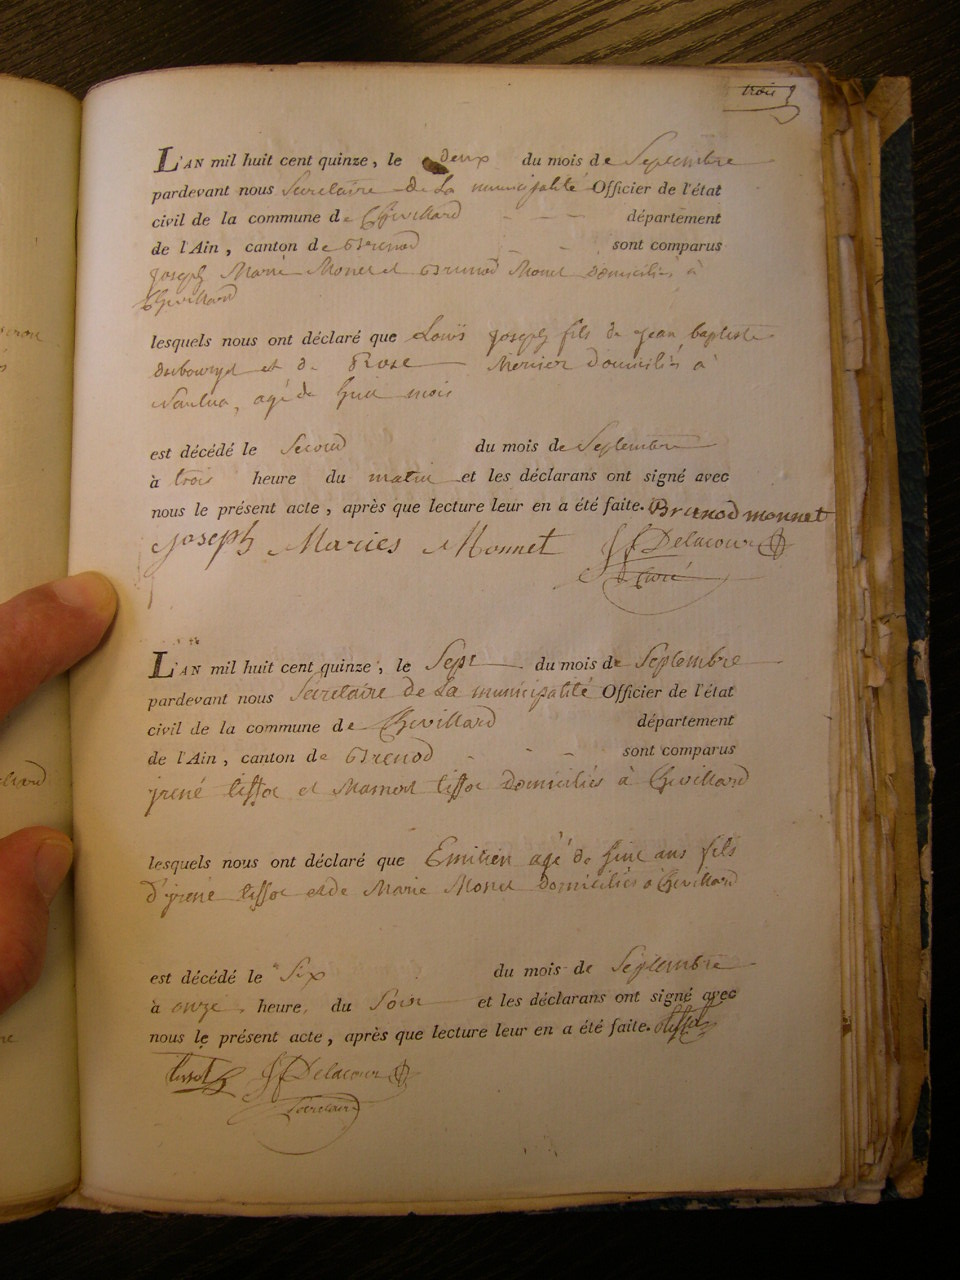 trois
L'AN mil huit cent quinze, le deux du mois de Septembre
pardevant nous Secretaire de La municipalité Officier de l'état
civil de la commune de Chevillard département
de l'Ain, canton de Brenod sont comparus
joseph Marie Monet et Brunod Monet Domiciliés à
Chevillard
lesquels nous ont déclaré que Louis joseph fils de jean baptiste
et de Rose Mercier domiciliés à
Nantua, agé de huit mois
est décédé le Second du mois de Septembre
à trois heure du matin et les déclarans ont signé avec
nous le présent acte, après que lecture leur en a été faite. Brunod monnet
joseph Maries Monnet Delacour
L'AN mil huit cent quinze, le Sept du mois de Septembre
pardevant nous Sécretaire de La municipalité Officier de l'état
civil de la commune de Chevillard département
de l'Ain, canton de Brenod sont comparus
jrené tissot et Mamert tissot Domiciliés à Chevillard
lesquels nous ont déclaré que Emilien agé de ans fils
d'jrené tissot et de Marie Monet Domiciliés a Chevillard
est décédé le Six du mois de Septembre
à onze heure, du Soir et les déclarans ont signé avec
nous le présent acte, après que lecture leur en a été faite. tissot
tissot Delacour
Secretaire